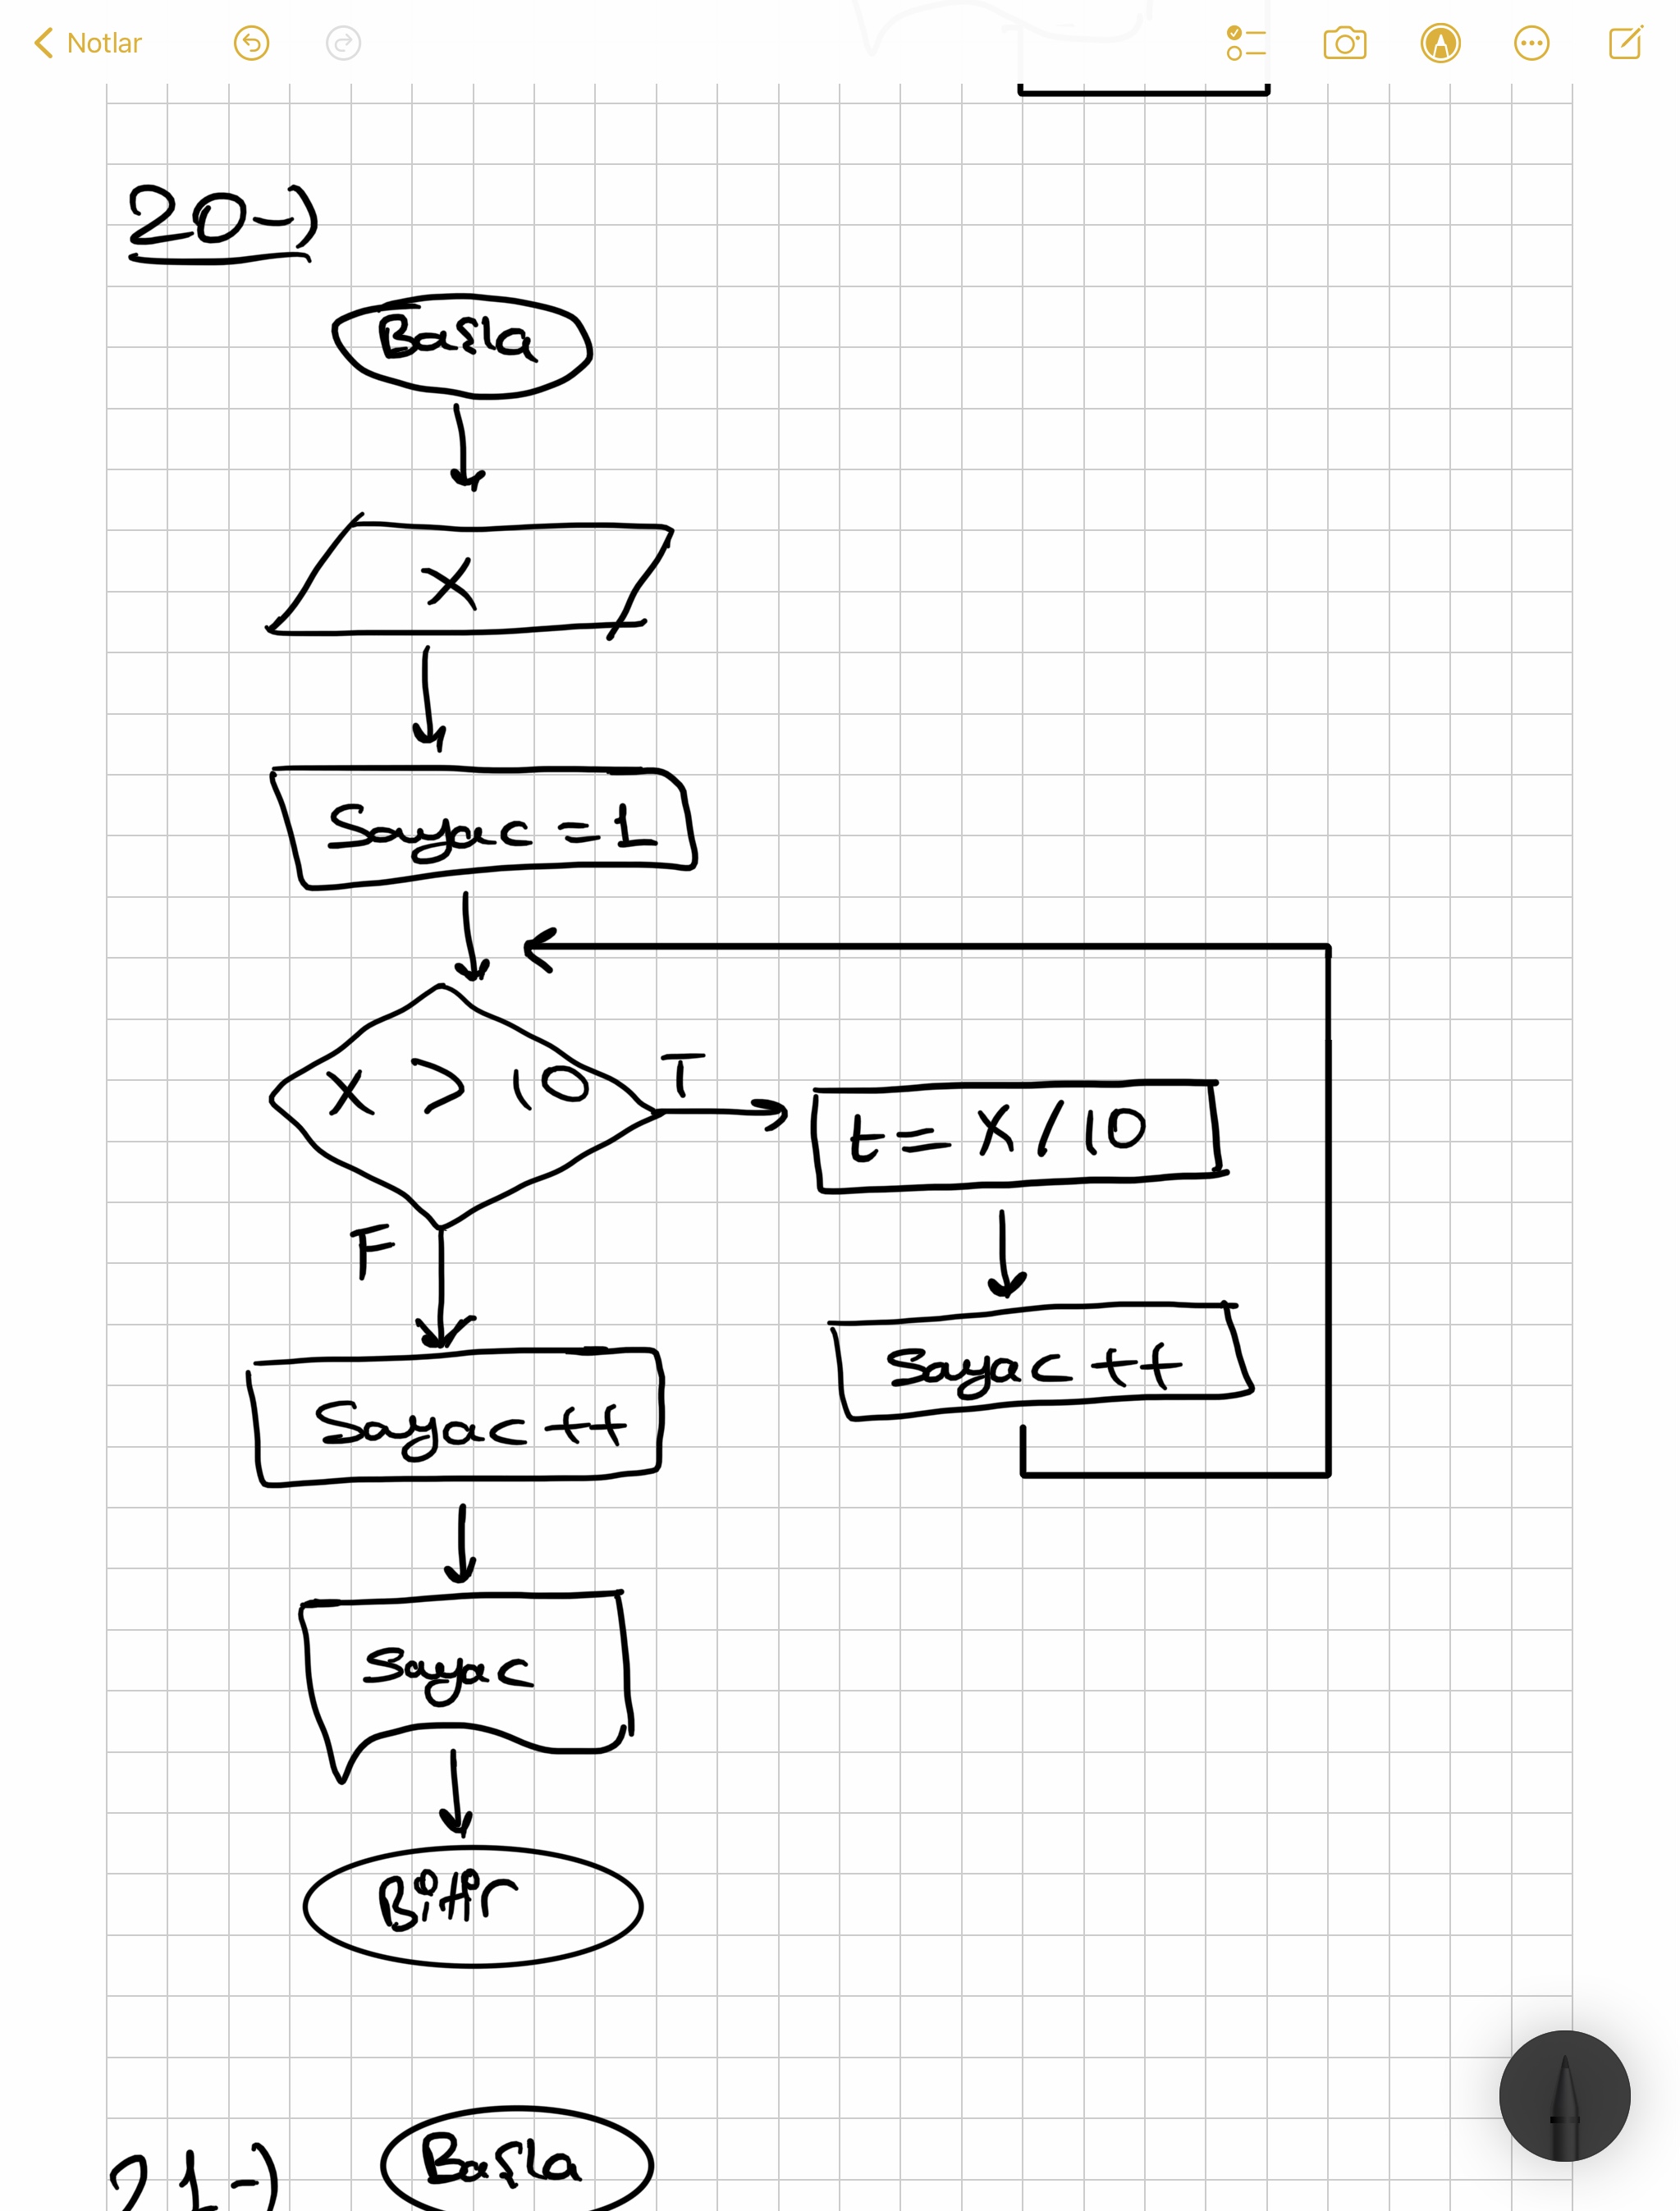 Notlar
20-)
Başla
X
Sayac = 1
X > 10
T
t = X / 10
F
Sayac ++
Sayac ++
Sayac
Bitir
21-)
Başla